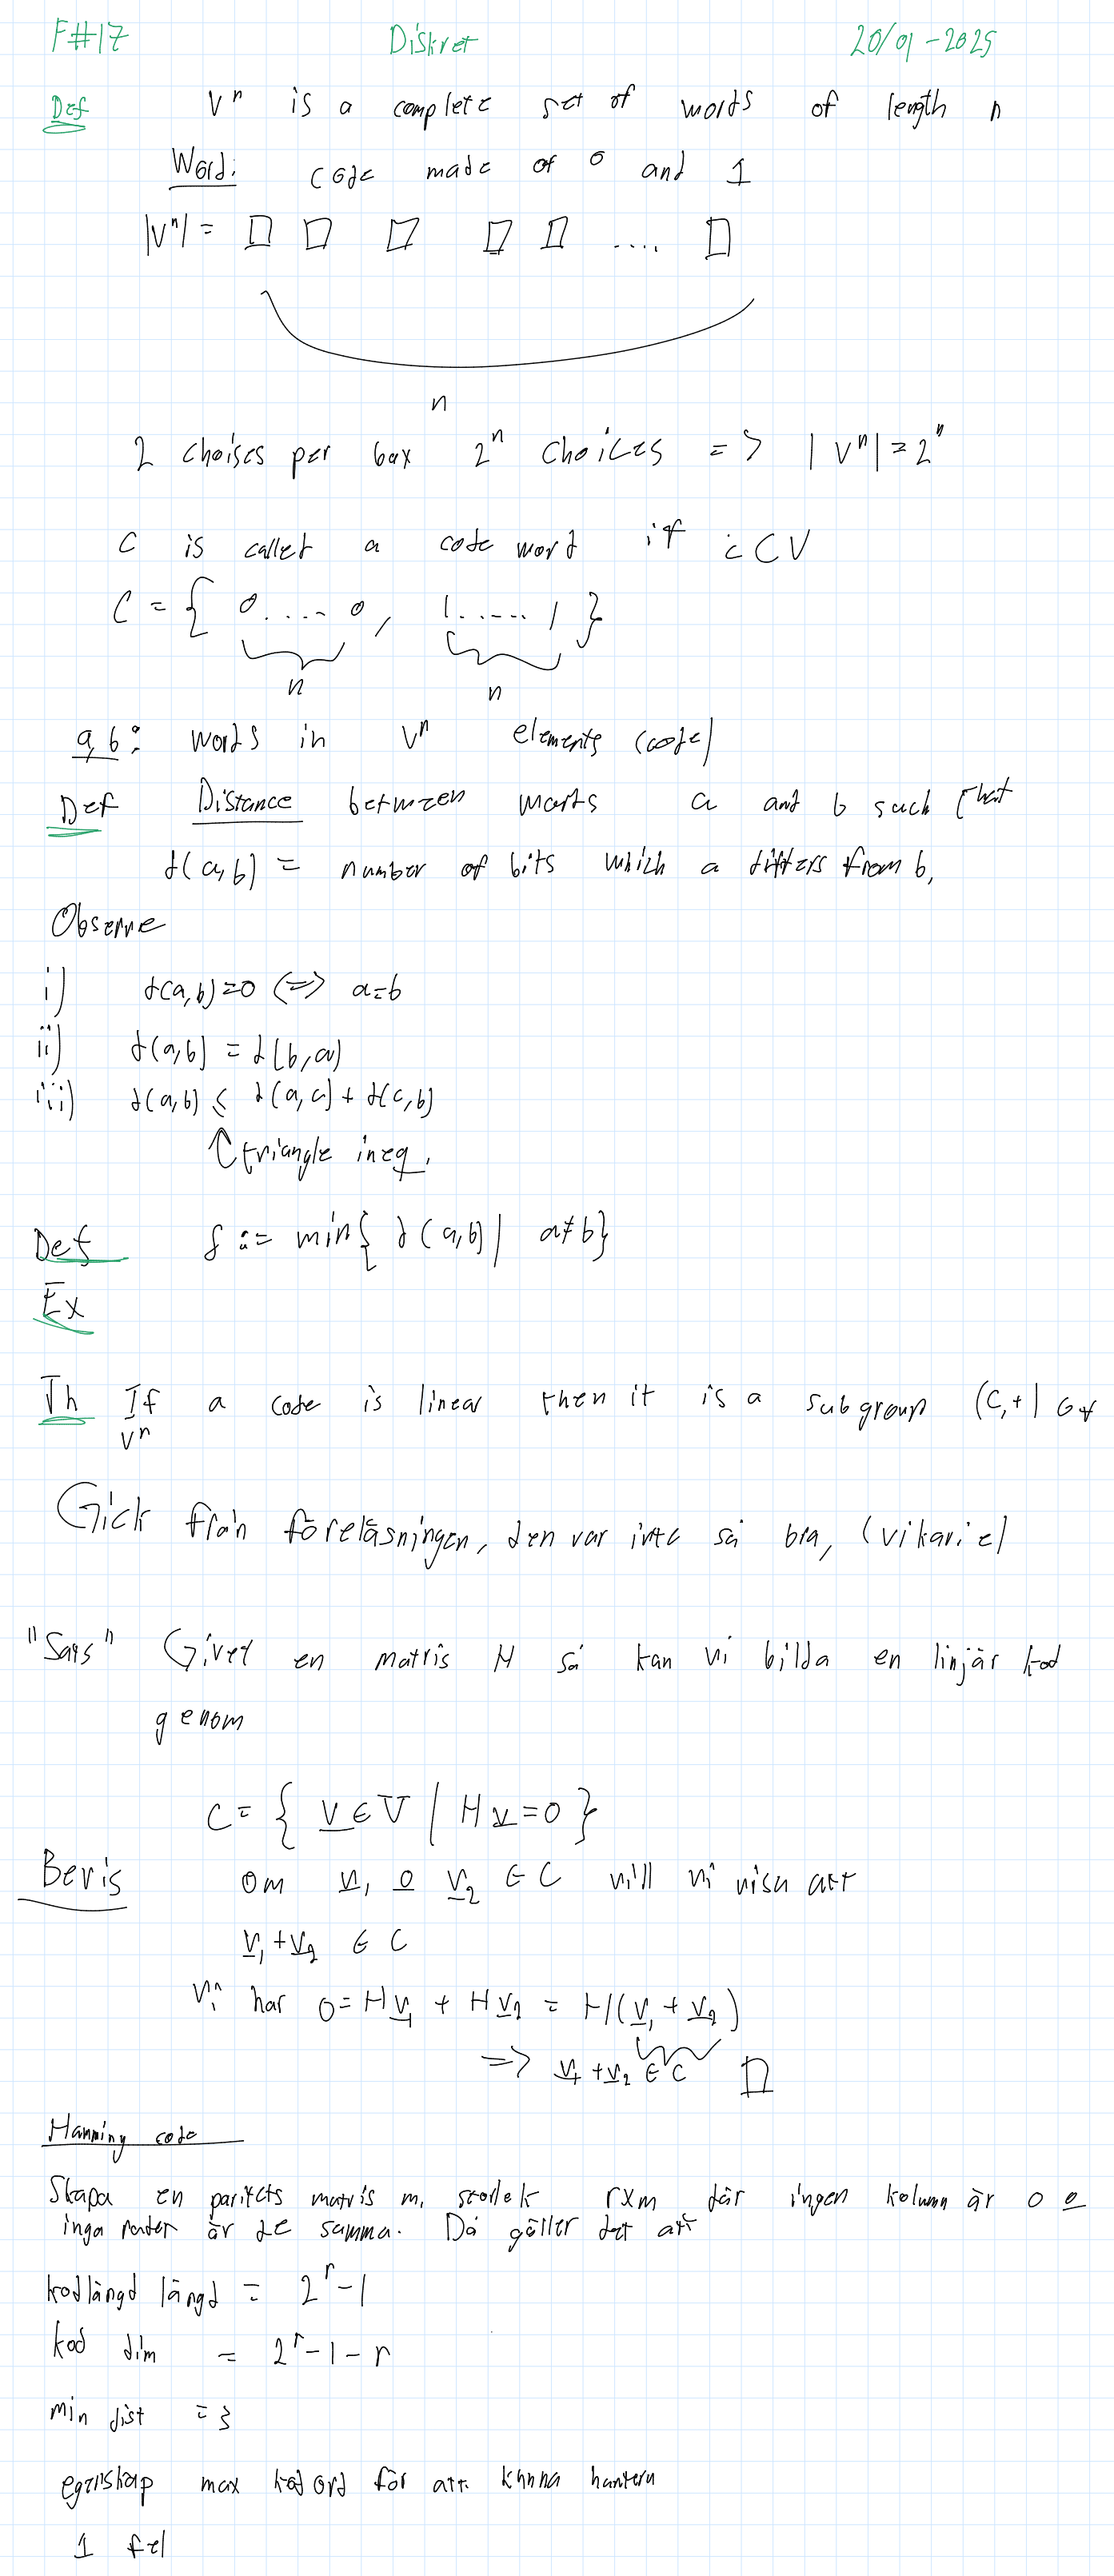 F#17 Diskret 20/01-2025
Def V^n is a complete set of words of length n
Word: code made of 0 and 1
|V^n| = □ □ □ □ □ .... □
n
2 choises per box 2^n choices => |V^n| = 2^n
C is callet a code word if C ⊂ V
C = { 0.....0, 1.....1 }
n n
a,b: words in V^n elements (code)
Def Distance between words a and b such that
d(a,b) = number of bits which a differs from b,
Observe
i) d(a,b)=0 <=> a=b
ii) d(a,b) = d(b,a)
iii) d(a,b) ≤ d(a,c) + d(c,b)
↑ triangle ineq.
Def δ := min{ d(a,b) | a≠b}
Ex
Th If a code is linear then it is a subgroup (C,+) of
V^n
Gick från föreläsningen, den var inte så bra, (vikarie)
"Sats" Givet en matris H så kan vi bilda en linjär kod
genom
C = { v ∈ V | Hv=0 }
Bevis Om v1 o v2 ∈ C vill vi visa att
v1+v2 ∈ C
Vi har 0 = Hv1 + Hv2 = H(v1 + v2)
=> v1+v2 ∈ C □
Hamming code
Skapa en paritets matris m. storlek rxm där ingen kolumn är 0 o
inga rader är de samma. Då gäller det att
kodlängd längd = 2^r-1
kod dim = 2^r-1-r
min dist = 3
egenskap max kod ord för att kunna hantera
1 fel